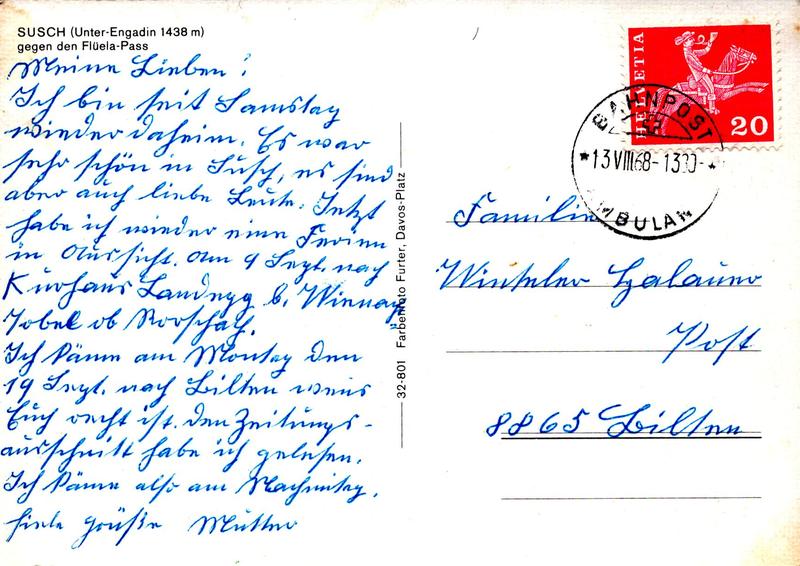 SUSCH (Unter-Engadin 1438 m)
gegen den Flüela-Pass
Meine Lieben!
Ich bin seit Samstag
wieder daheim. Es war
sehr schön in Susch, es sind
aber auch liebe Leute. Jetzt
habe ich wieder eine Ferien
in Aussicht. Am 9 Sept. nach
Kurhaus Landegg b. Wienacht
Tobel ob Rorschach.
Ich käme am Montag den
19 Sept. nach Bilten wens
Euch recht ist. den Zeitungs-
ausschnitt habe ich gelesen.
Ich käme also am Nachmittag.
Viele Grüße Mutter
32-801 Farbenfoto Furter, Davos-Platz
HELVETIA
20
BAHNPOST
*13.VIII.68-13
AMBULANT
Familie
Winteler
Post
8865 Bilten